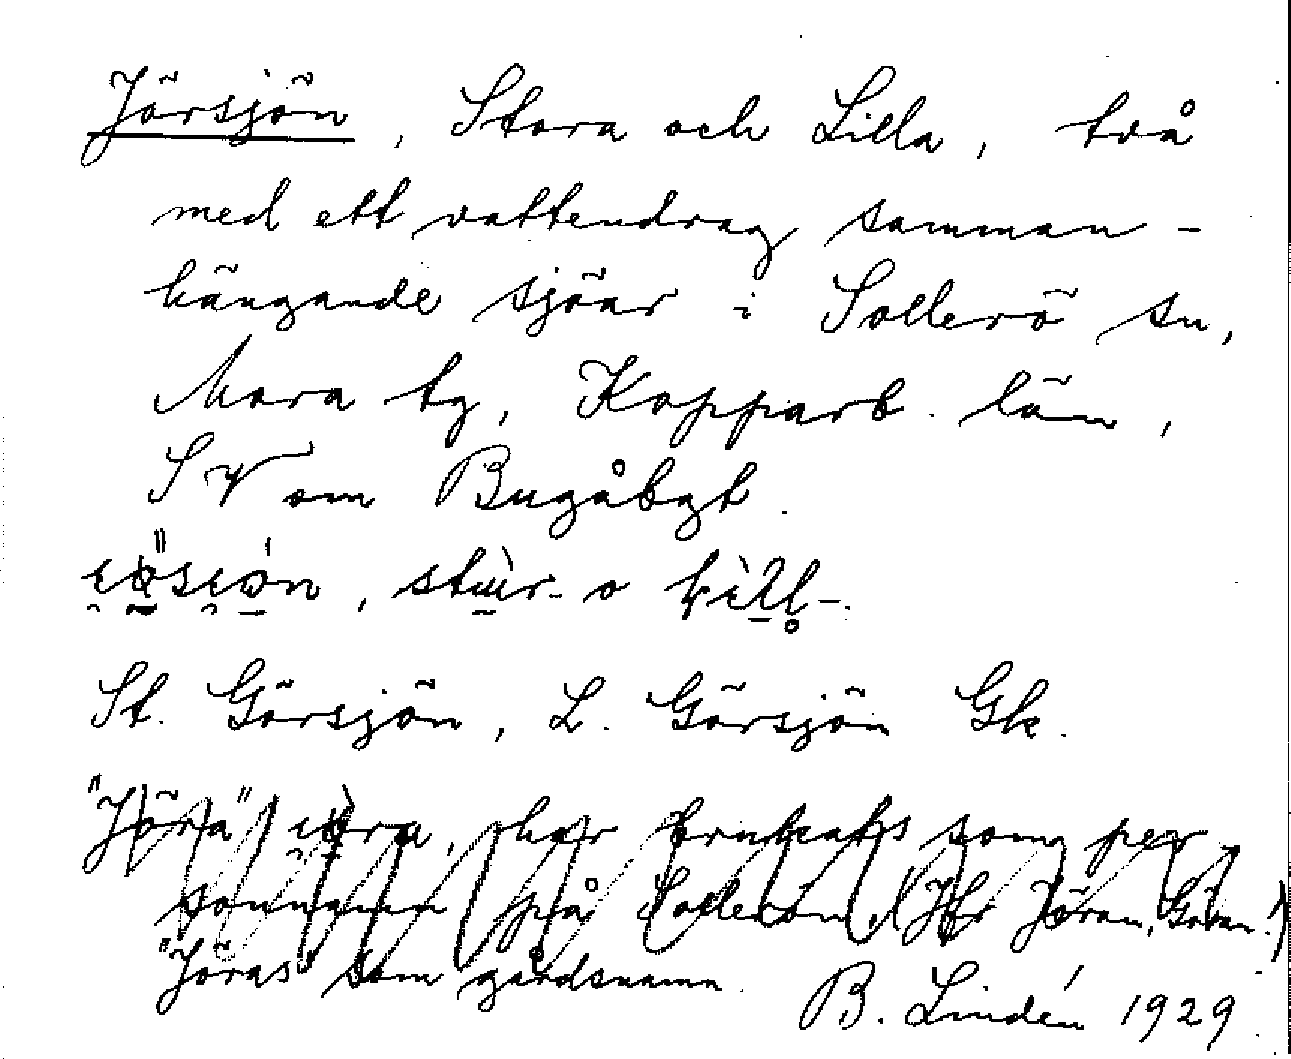 Jörsjön, Stora och Lilla, två
med ett vattendrag samman-
hängande sjöar i Sollerö sn,
Mora tg, Kopparb. län,
SV om Bugåbgt.
St. Görsjön, L. Görsjön Gk.
"Jöra" har brukats som per-
sonnamn på Sollerön (Jfr Jöran, Göran.)
"Jöras" som gårdsnamn.
B. Lindén 1929.